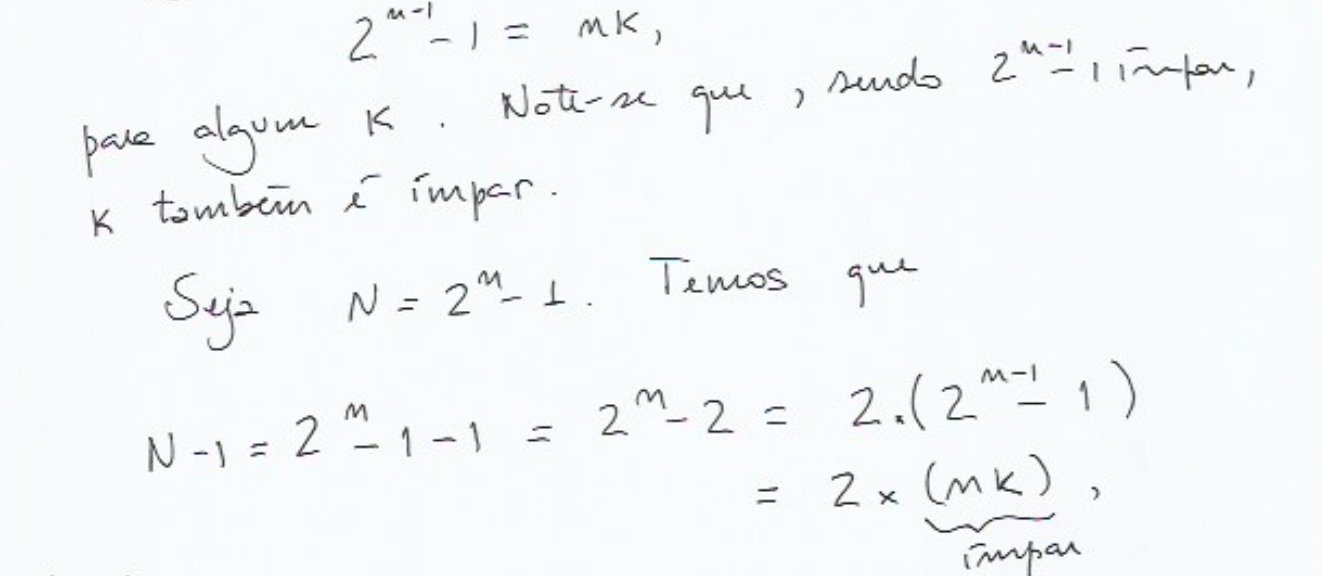 2^{n-1} - 1 = nk,
para algum k. Note-se que, sendo 2^{n-1} - 1 ímpar,
k também é ímpar.
Seja N = 2^n - 1. Temos que
N - 1 = 2^n - 1 - 1 = 2^n - 2 = 2.(2^{n-1} - 1)
= 2 × (nk),
ímpar